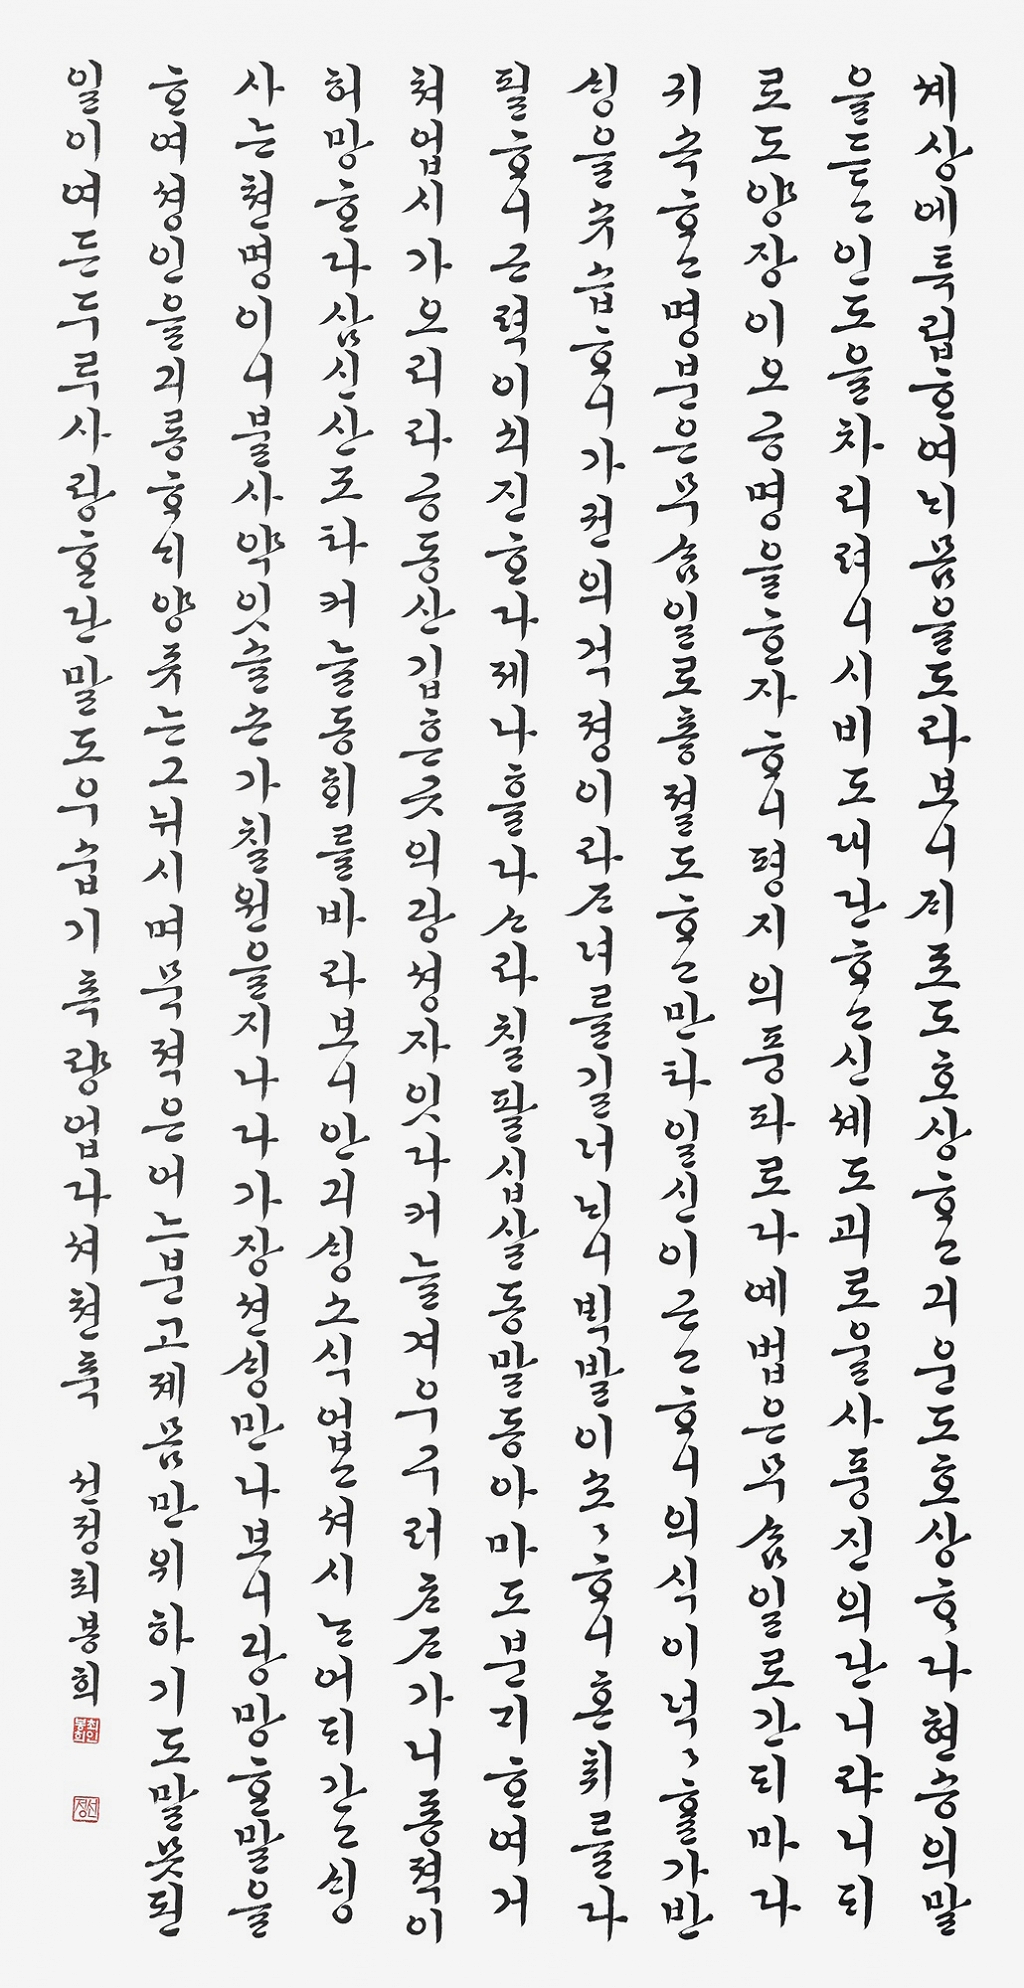 셰상에특립ᄒᆞ여ᄂᆡ몸을도라보니ᄌᆡ료도호상ᄒᆞ고긔운도호상ᄒᆞ다현숑의말
을듯고인도을차리려니시비도대단ᄒᆞ고신셰도괴로올사풍진의단니랴니되
로도양장이오공명을ᄒᆞ자ᄒᆞ니평지의풍파로다예법은무ᄉᆞᆷ일로간ᄃᆡ마다
귀속ᄒᆞ고명분은무ᄉᆞᆷ일로층졀도ᄒᆞ고만타일신이근고ᄒᆞ니의식이넉〻ᄒᆞᆯ가반
ᄉᆡᆼ을숫습ᄒᆞ니가권의걱졍이라ᄌᆞ녀를길너ᄂᆡ니ᄇᆡᆨ발이초〻ᄒᆞ니혼취를다
필ᄒᆞ니근력이쇠진ᄒᆞ다제나ᄒᆞᆯ나ᄉᆞ라칠팔십살동말동아마도분긔ᄒᆞ여거
쳐업시가오리라공동산깁흔곳의광셩자잇다커늘겨우구러ᄎᆞᄌᆞ가니종젹이
허망ᄒᆞ다삼신산조타커늘동ᄒᆡ를바라보니안긔ᄉᆡᆼ소식업고셔시ᄂᆞᆫ어ᄃᆡ간고ᄉᆡᆼ
사는쳔명이니불사약잇슬손가칠원을지나다가장션ᄉᆡᆼ만나보니광망ᄒᆞᆫ말을
ᄒᆞ여셩인을긔롱ᄒᆞᄂᆡ양쥬는그뉘시며묵젹은어ᄂᆞ분고졔몸만위하기도말못된
일이여든두루사랑ᄒᆞᆫ단말도우숩기측량업다셔쳔츅 선정최봉희